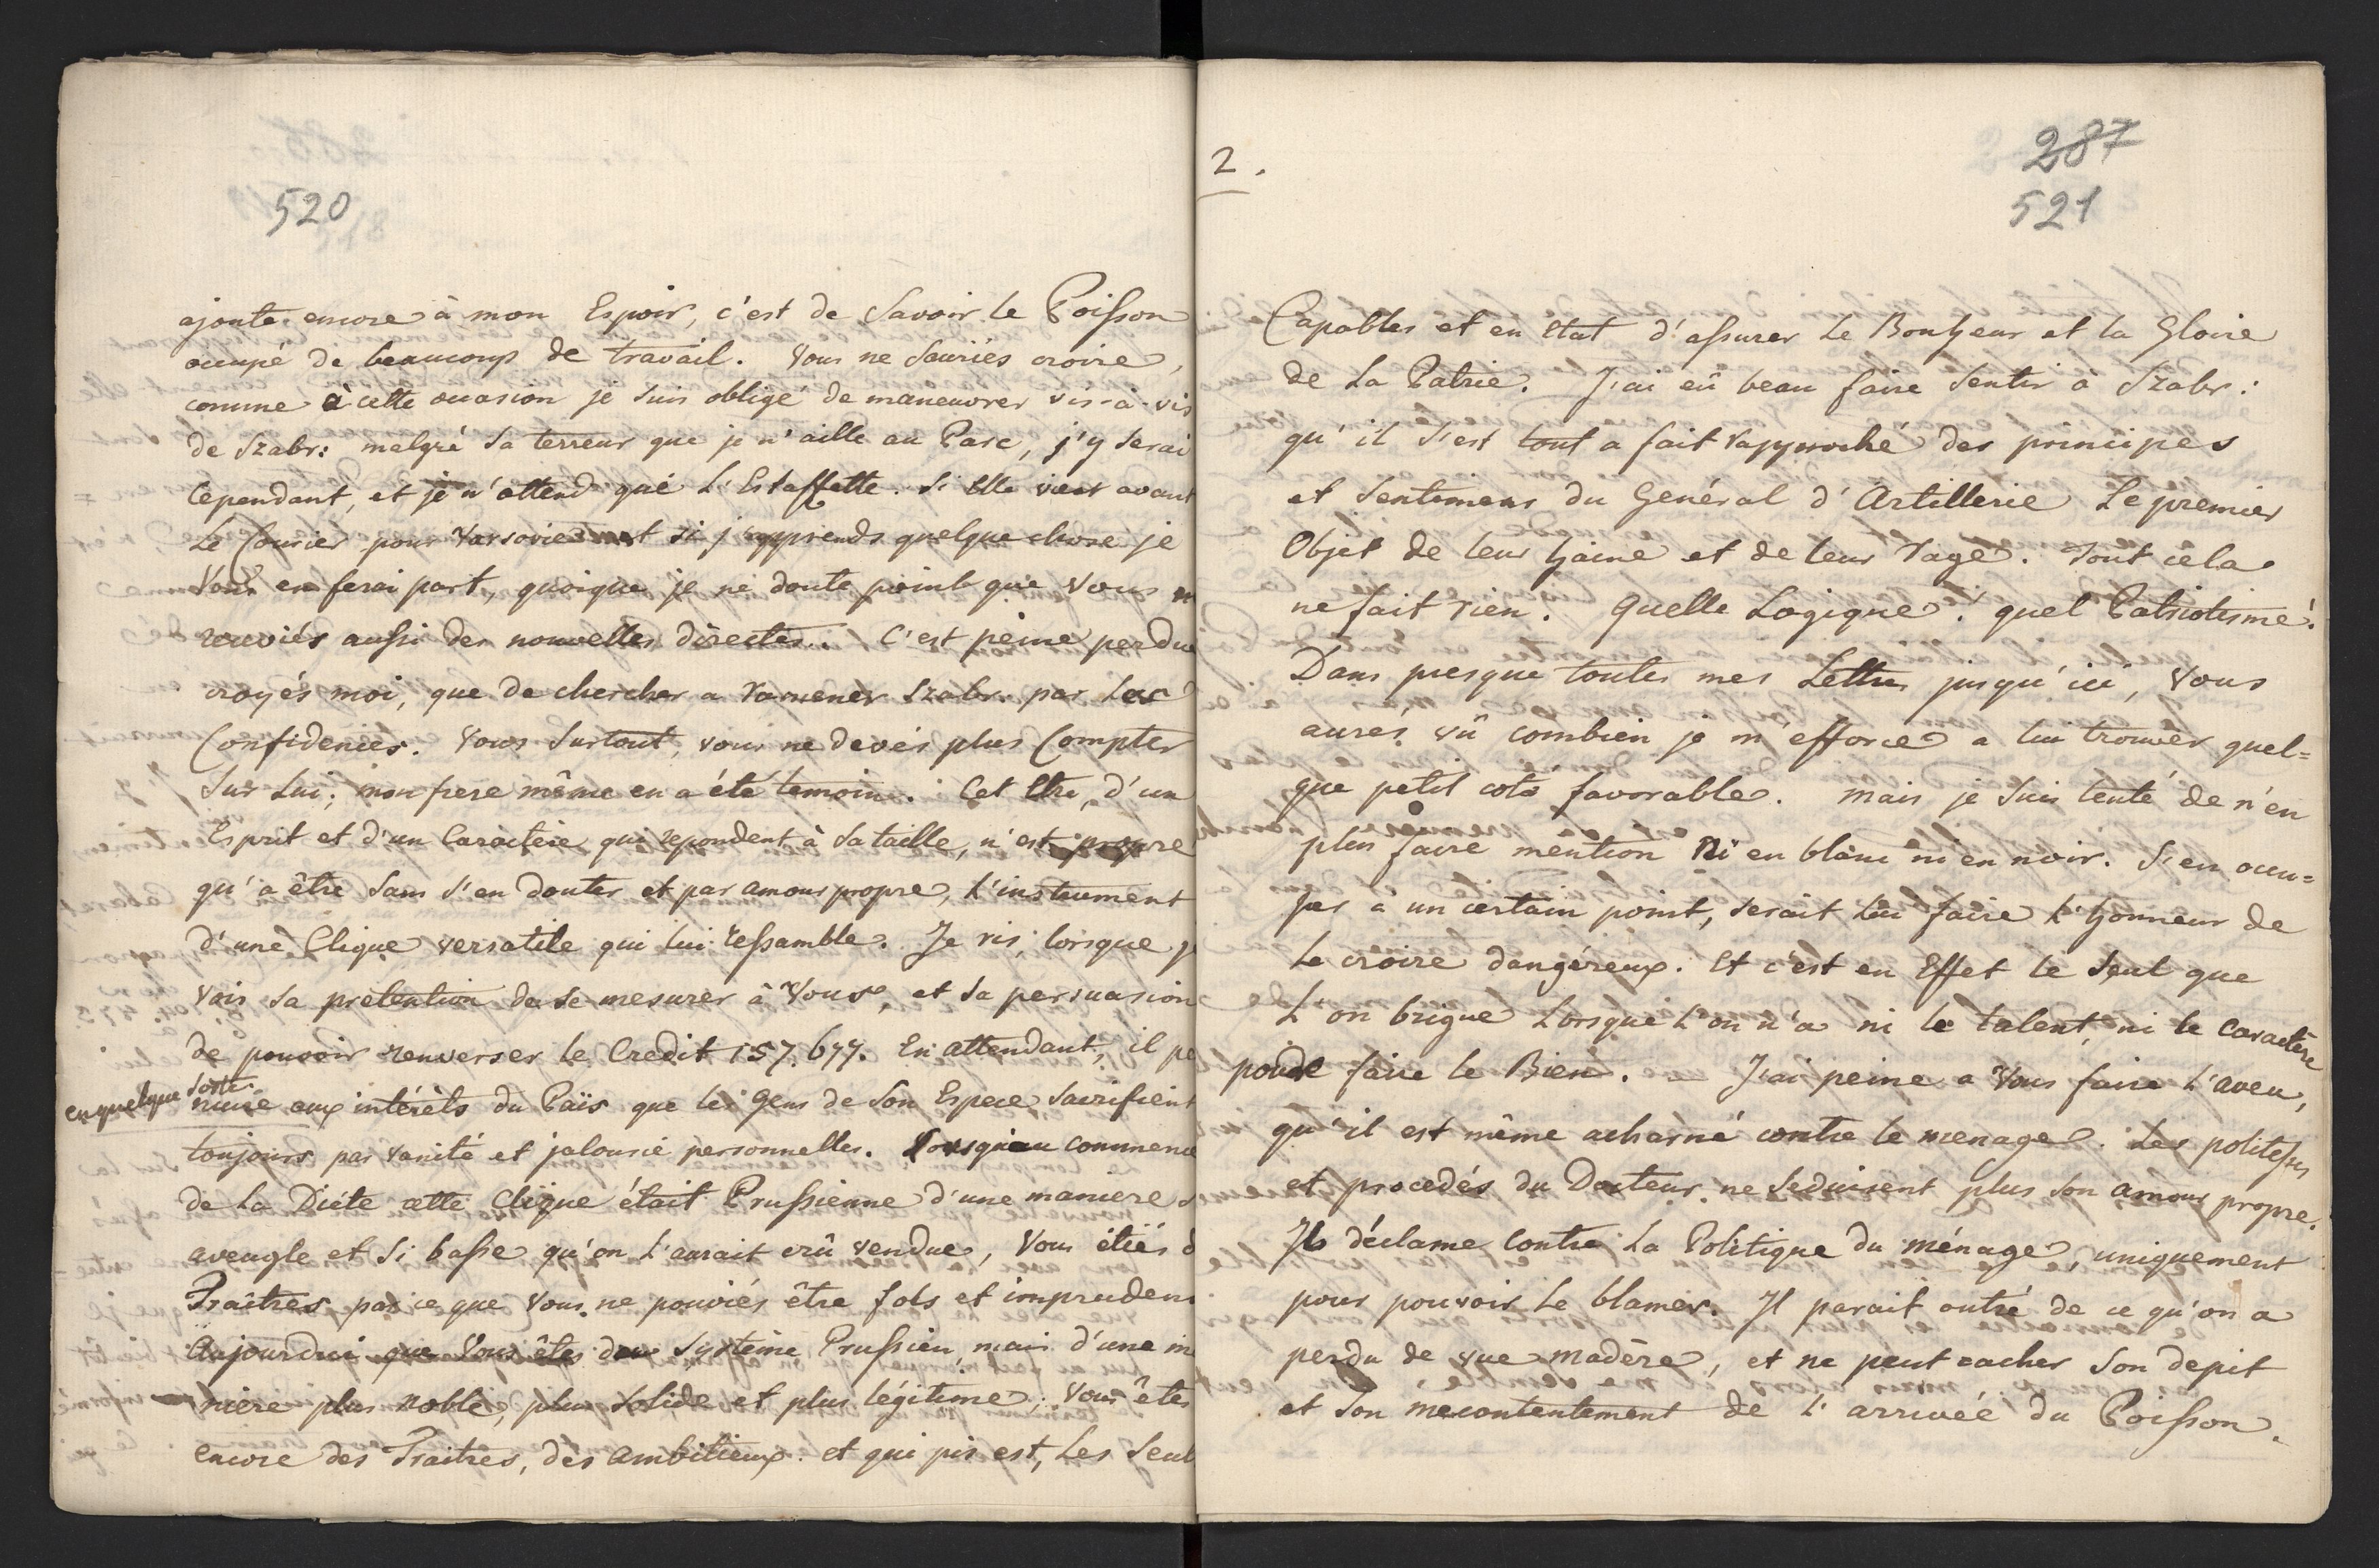 520
ajoute encore à mon Espoir, c'est de Savoir le Poisson
occupé de beaucoup de travail. Vous ne Sauriés croire,
comme à cette occasion je suis obligé de maneuvrer vis-à-vis
de Szabr: malgré sa terreur que je n'aille au Parc, j'y serai
Cependant, et je n'attend que L'Estaffette. Si Elle vient avant
Le Courier pour Varsovie et si j'apprends quelque chose je
Vous en ferai part, quoique je ne doute point que Vous n
receviés aussi des nouvelles directes. C'est peine perdue
croyés moi, que de chercher a ramener Szabr: par Les
Confidences. Vous Surtout, vous ne devés plus Compter
Sur Lui; mon frere même en a été temoin. Cet Etre, d'un
Esprit et d'un Caractére qui repondent à Sa taille, n'est propre
qu'a être Sans s'en douter et par amour propre, L'instrument
d'une Clique versatile qui Lui ressamble. Je ris, lorsque je
Vois Sa prétention de se mesurer à Vous, et Sa persuasion
de pouvoir renverser le Credit 157. 677. En attendant, il pe
en quelque sorte
nuire aux intérêts du Païs que les Gens de Son Espece, Sacrifient
toujours par vanité et jalousie personnelles. Lorsqu'au commence
de La Diéte cette Clique était Prussienne d'une maniere s
aveugle et Si basse qu'on L'aurait crû vendue, Vous étiés d
Traîtres par ce que Vous ne pouviés être fols et imprudens
Aujourdui que Vous êtes du Systéme Prussien, mais d'une m
niere plus noble, plus solide et plus légitime; Vous êtes
encore des Traitres, des Ambitieux. et qui pis est, Les Seul
2.
287
521
Capables et en Etat d'assurer Le Bonheur et La Gloire
de La Patrie. J'ai eû beau faire Sentir à Szabr:
qu'il s'est tout a fait rapproché des principes
et Sentimens du Genéral d'Artillerie Le premier
Objet de leur haine et de leur rage. Tout cela
ne fait rien. Quelle Logique! quel Patriotisme!
Dans presque toutes mes Lettres jusqu'ici, Vous
aurés vû combien je m'efforce a Lui trouver quel=
que petit coté favorable. Mais je Suis tenté de n'en
plus faire mention Ni en blanc ni en noir. S'en occu=
per à un certain point, serait Lui faire L'honneur de
Le croire dangéreux. Et c'est en Effet le Seul que
L'on brigue Lorsque L'on n'a ni le talent, ni le Caractére
pour faire le Bien. — J'ai peine a Vous faire L'aveu,
qu'il est même acharné contre le menage. Les politesses
et procedés du Docteur ne Seduisent plus Son amour propre.
Il déclame Contre La Politique du ménage, uniquement
pour pouvoir Le blamer. Il parait outré de ce qu'on a
perdu de vue Madère, et ne peut cacher Son depit
et Son mécontentement de L'arrivée du Poisson.